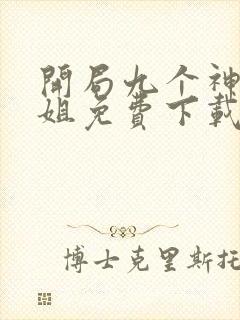 開局九个神
姐免費下載
博士克里斯托